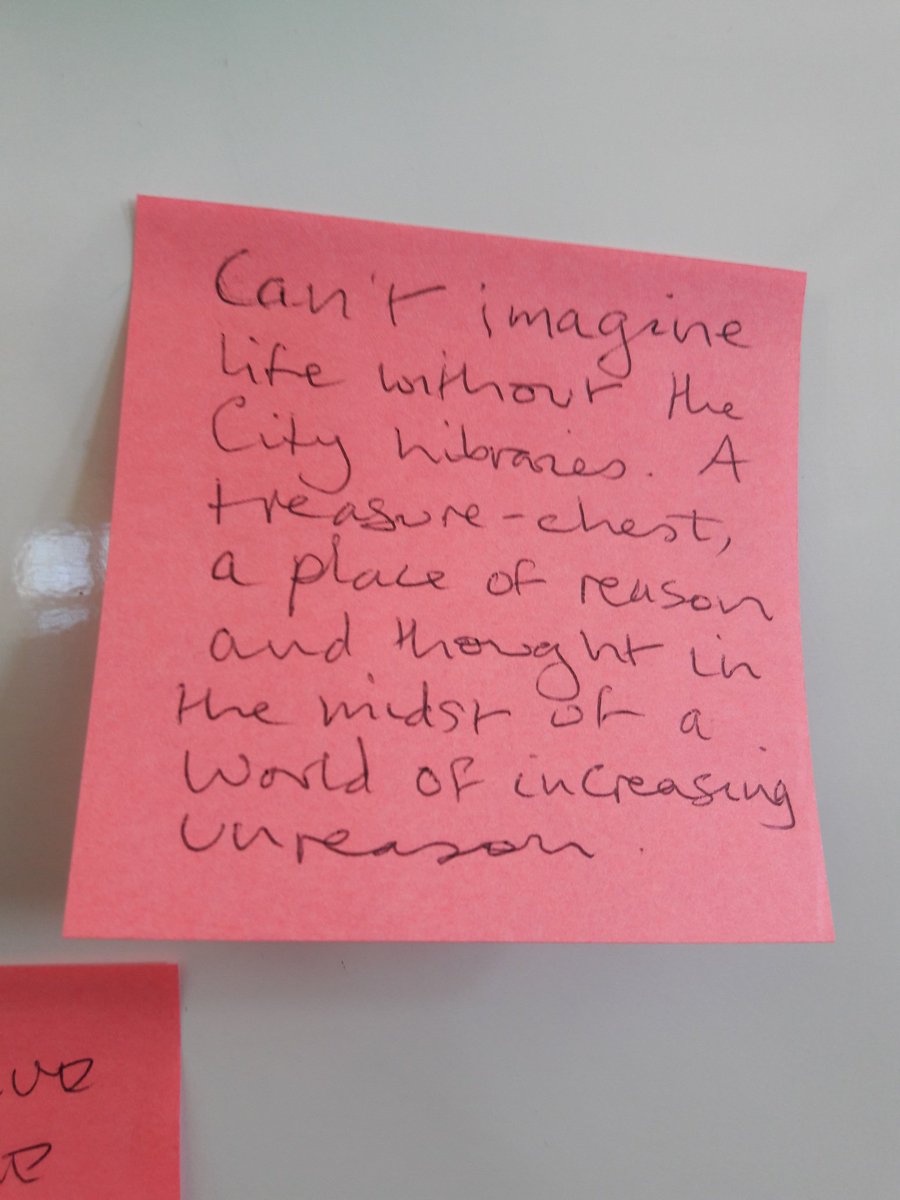 Can't imagine
life without the
City Libraries. A
treasure-chest,
a place of reason
and thought in
the midst of a
World of increasing
unreason.